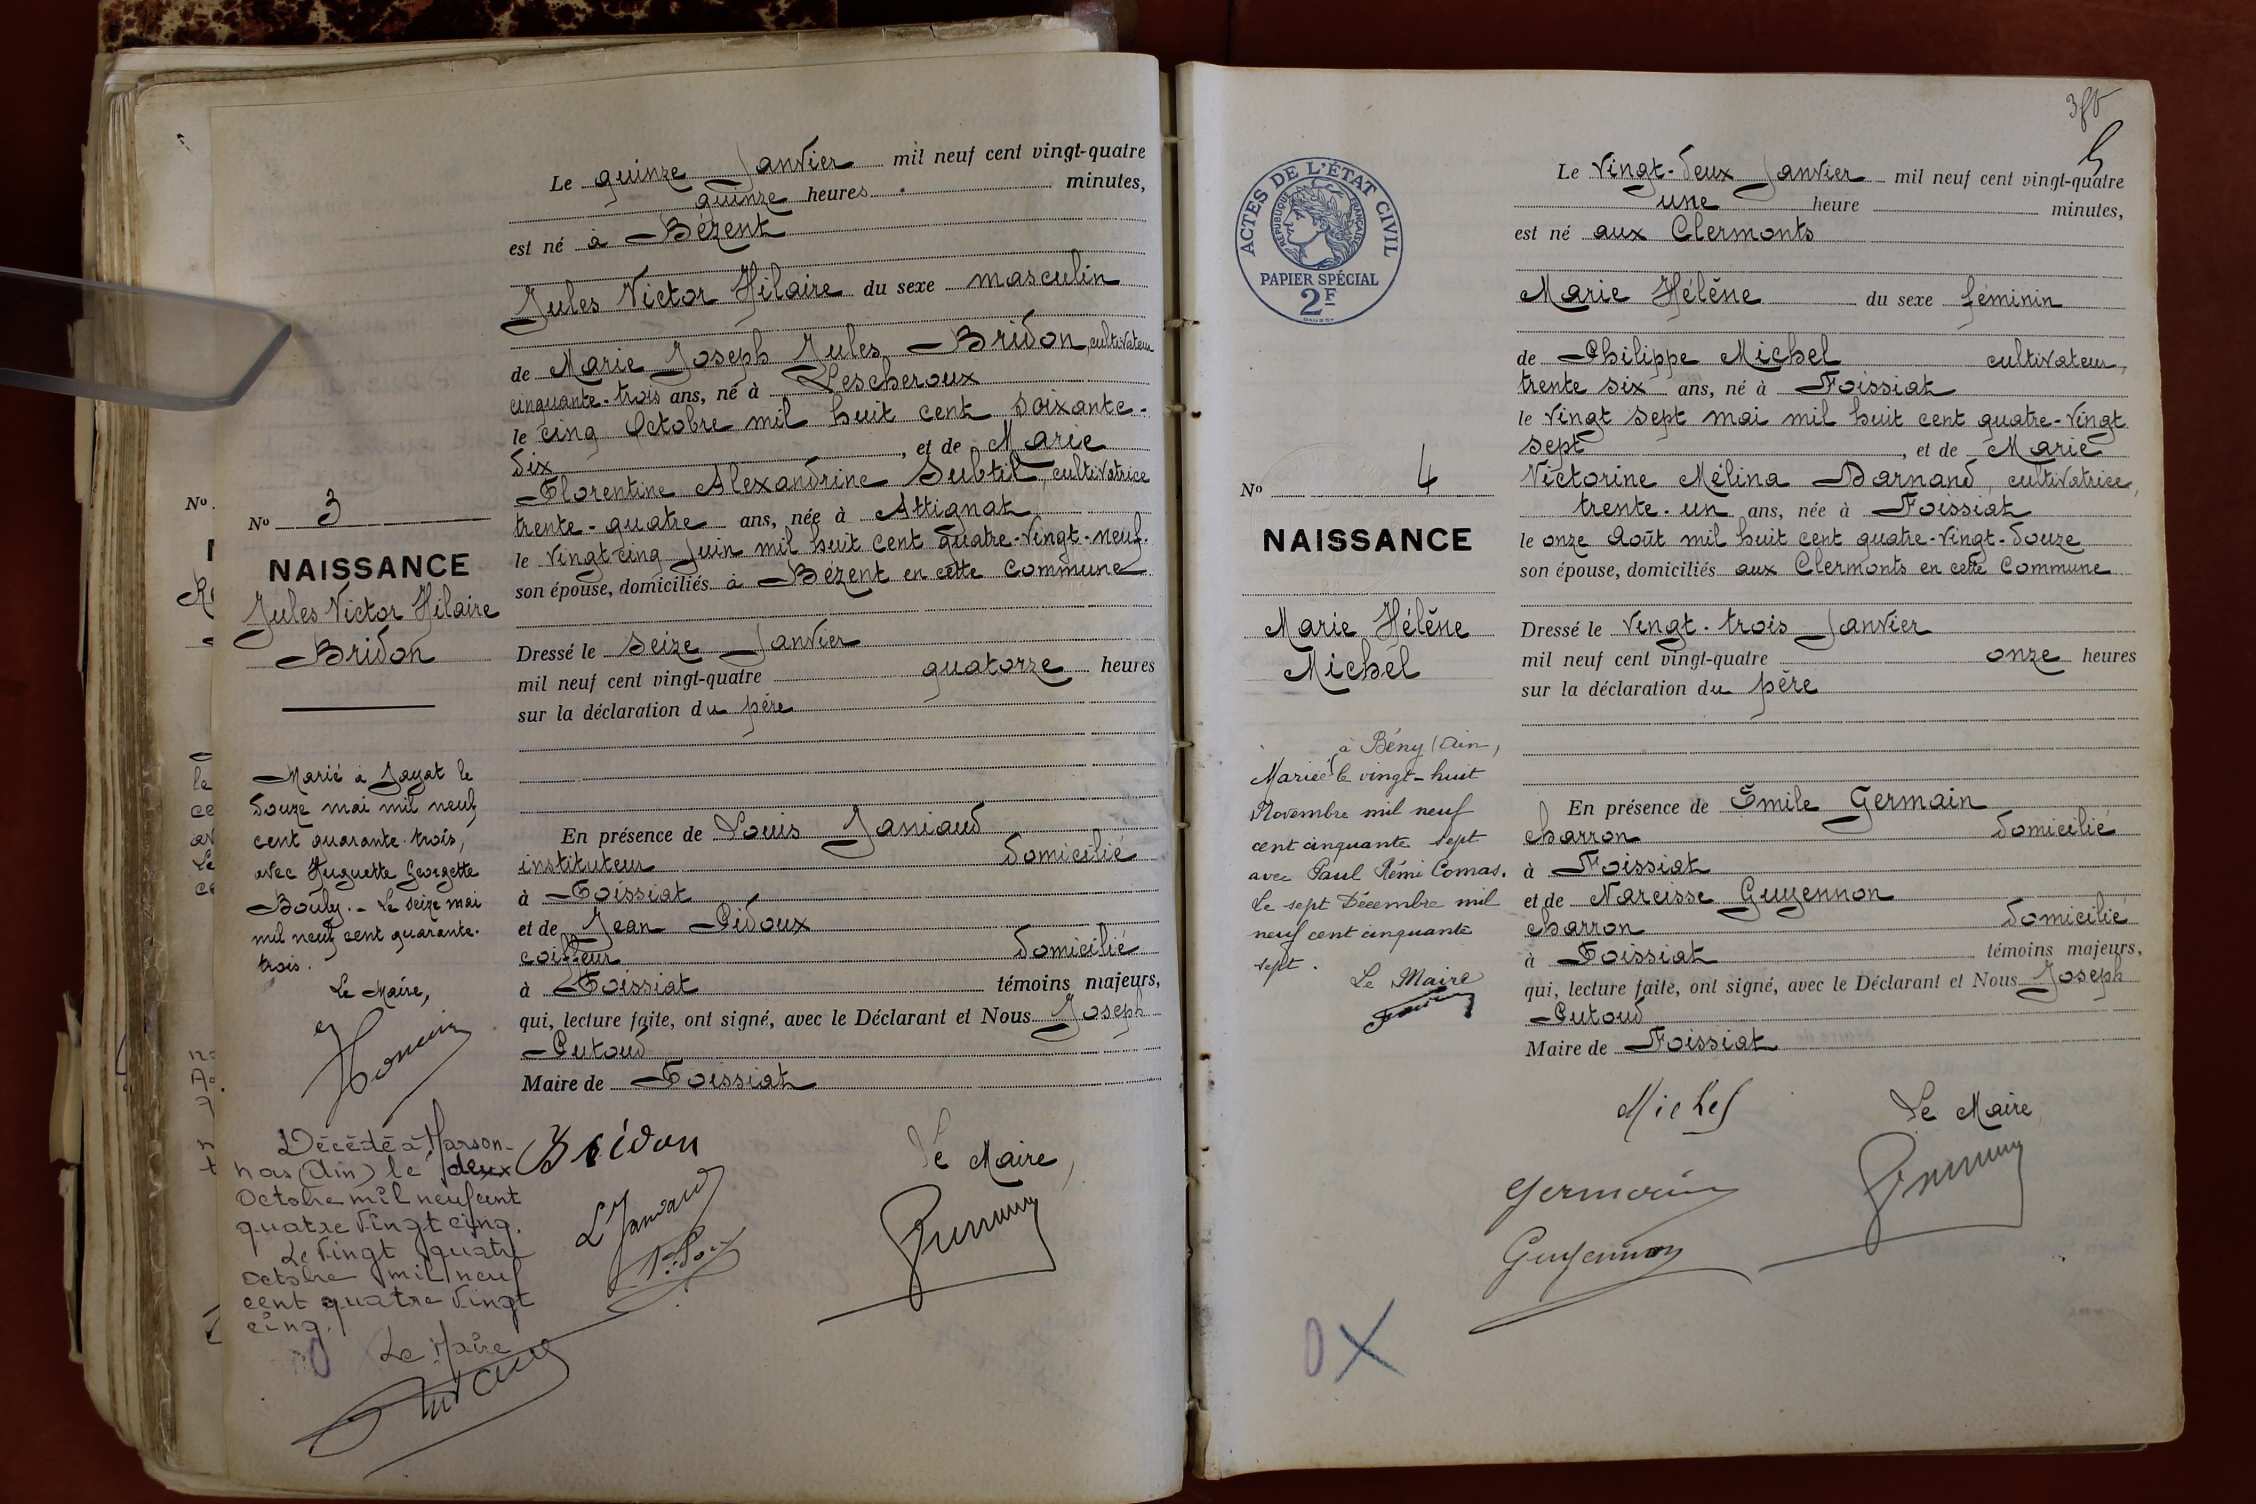 Le quinze Janvier mil neuf cent vingt-quatre
quinze heures minutes,
est né à Bézent
Jules Victor Hilaire du sexe masculin
de Marie Joseph Jules Bridon, cultivateur
cinquante-trois ans, né à Lescheroux
le cinq Octobre mil huit cent soixante-
dix, et de Marie
Florentine Alexandrine Subtil, cultivatrice
trente-quatre ans, née à Attignat
le vingt cinq Juin mil huit cent quatre-vingt-neuf.
son épouse, domiciliés à Bézent en cette Commune
Dressé le seize Janvier
mil neuf cent vingt-quatre quatorze heures
sur la déclaration du père
En présence de Louis Janiaud
instituteur domicilié
à Foissiat
et de Jean Pidoux
coiffeur domicilié
à Foissiat témoins majeurs,
qui, lecture faite, ont signé, avec le Déclarant et Nous Joseph
Putoud
Maire de Foissiat
Bridon
Le Maire,
No 3
NAISSANCE
Jules Victor Hilaire
Bridon
Marié à Jayat le
douze mai mil neuf
cent quarante-trois,
avec Huguette Georgette
Bouly. - Le seize mai
mil neuf cent quarante-
trois.
Le Maire,
Décédé à Marson-
nas (Ain) le deux
Octobre mil neuf cent
quatre vingt cinq.
Le vingt quatre
Octobre mil neuf
cent quatre vingt
cinq.
Le Maire
No
5
ACTES DE L'ÉTAT CIVIL
RÉPUBLIQUE FRANÇAISE
PAPIER SPÉCIAL
2F
Le vingt-deux Janvier mil neuf cent vingt-quatre
une heure minutes,
est né aux Clermonts
Marie Hélène du sexe féminin
de Philippe Michel cultivateur,
trente six ans, né à Foissiat
le vingt sept mai mil huit cent quatre-vingt
sept, et de Marie
Victorine Mélina Darnand, cultivatrice,
trente-un ans, née à Foissiat
le onze Août mil huit cent quatre-vingt-douze
son épouse, domiciliés aux Clermonts en cette Commune
Dressé le vingt-trois Janvier
mil neuf cent vingt-quatre onze heures
sur la déclaration du père
En présence de Émile Germain
charron domicilié
à Foissiat
et de Narcisse Guyennon
charron domicilié
à Foissiat témoins majeurs,
qui, lecture faite, ont signé, avec le Déclarant et Nous Joseph
Putoud
Maire de Foissiat
Michel
Le Maire
Germain
Guyennon
No 4
NAISSANCE
Marie Hélène
Michel
à Bény (Ain,
Mariée le vingt-huit
Novembre mil neuf
cent cinquante sept
avec Paul Rémi Comas.
Le sept Décembre mil
neuf cent cinquante
sept.
Le Maire
0 X